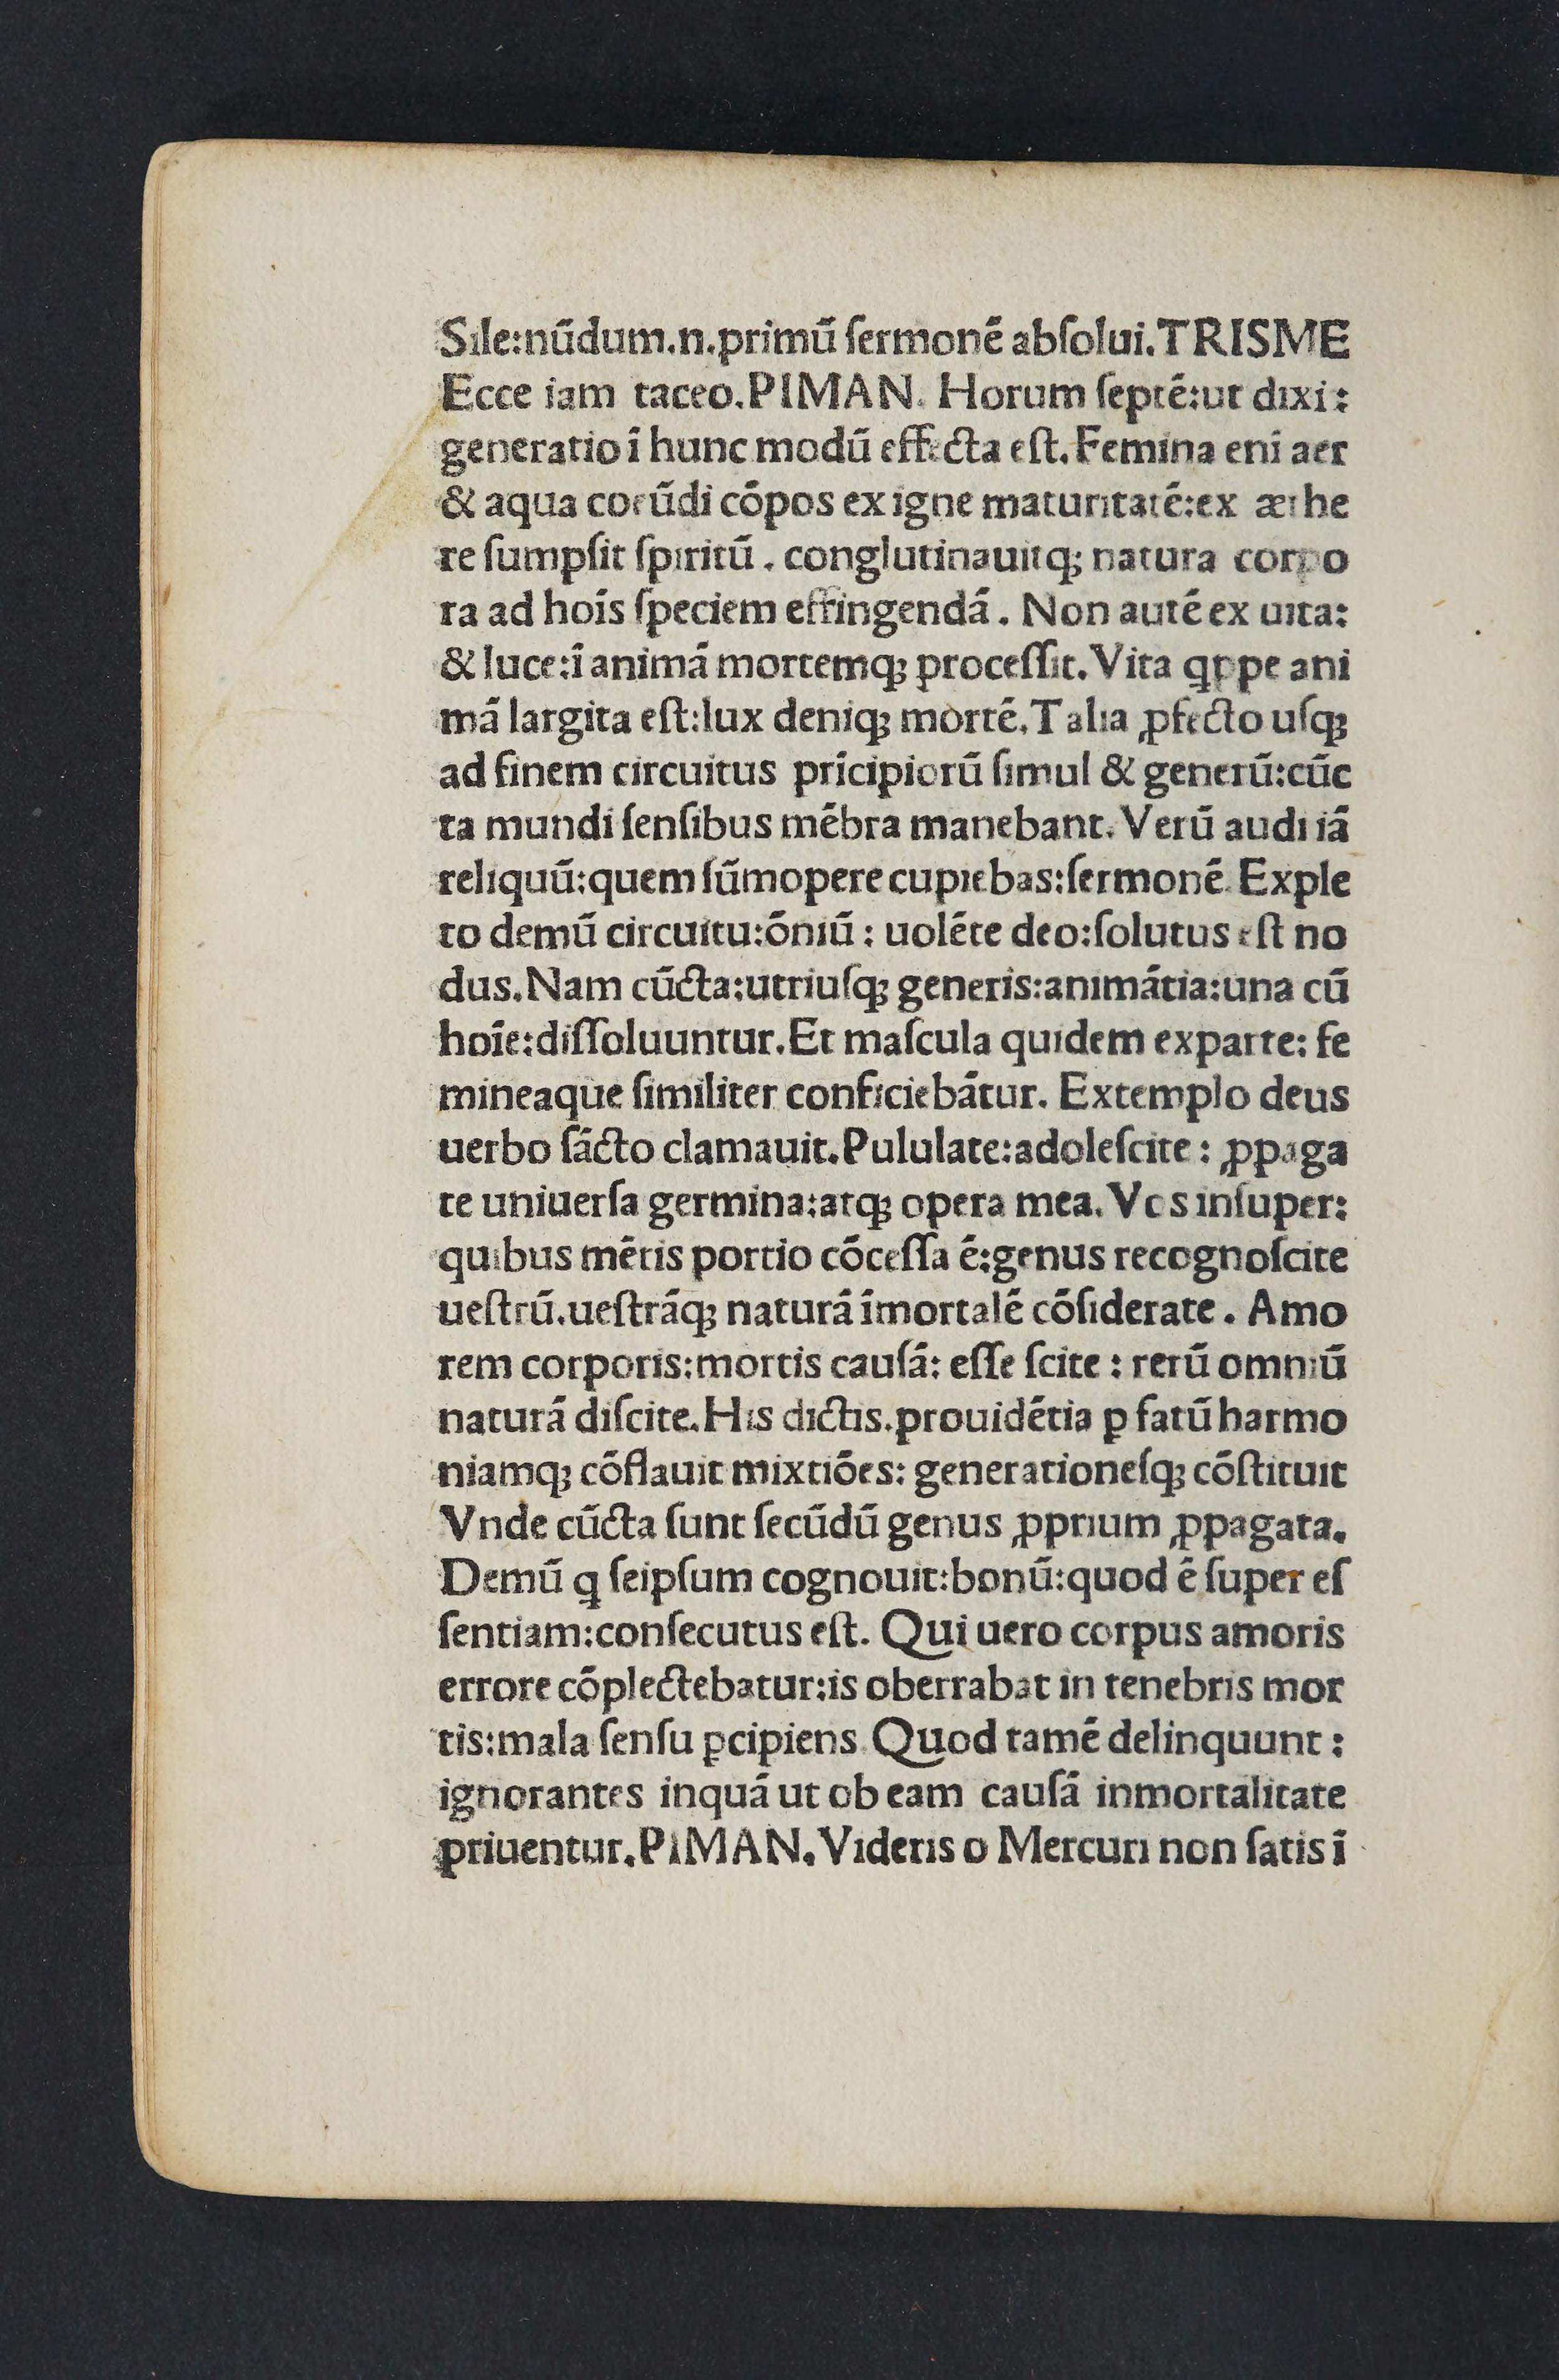 Sile:nūdum.n.primū ſermonē abſolui.TRISME
Ecce iam taceo.PIMAN. Horum ſeptē:ut dixi:
generatio ī hunc modū effecta eſt.Femina enī aer
& aqua coeūdi cōpos ex igne maturitatē:ex æthe
re ſumpſit ſpiritū. conglutinauitq; natura corpo
ra ad hoīs ſpeciem effingendā. Non autē ex uita:
& luce:ī animā mortemq; proceſſit.Vita qppe ani
mā largita eſt:lux deniq; mortē.Talia ꝓfecto uſq;
ad finem circuitus prīcipiorū ſimul & generū:cūc
ta mundi ſenſibus mēbra manebant.Verū audi iā
reliquū:quem ſūmopere cupiebas:ſermonē.Exple
to demū circuitu:ōniū: uolēte deo:ſolutus eſt no
dus.Nam cūcta:utriuſq; generis:animātia:una cū
hoīe:diſſoluuntur.Et maſcula quidem exparte: fe
mineaque ſimiliter conficiebātur. Extemplo deus
uerbo ſācto clamauit.Pululate:adoleſcite: ꝓpaga
te uniuerſa germina:atq; opera mea.Vos inſuper:
quibus mētis portio cōceſſa ē:genus recognoſcite
ueſtrū.ueſtrāq; naturā īmortalē cōſiderate. Amo
rem corporis:mortis cauſā: eſſe ſcite: rerū omniū
naturā diſcite.His dictis.prouidētia ꝑ fatū harmo
niamq; cōflauit mixtiōes: generationeſq; cōſtituit
Vnde cūcta ſunt ſecūdū genus ꝓprium ꝓpagata.
Demū q ſeipſum cognouit:bonū:quod ē ſuper eſ
ſentiam:conſecutus eſt. Qui uero corpus amoris
errore cōplectebatur:is oberrabat in tenebris mor
tis:mala ſenſu ꝑcipiens.Quod tamē delinquunt:
ignorantes inquā ut ob eam cauſā inmortalitate
priuentur.PIMAN.Videris o Mercuri non ſatis ī